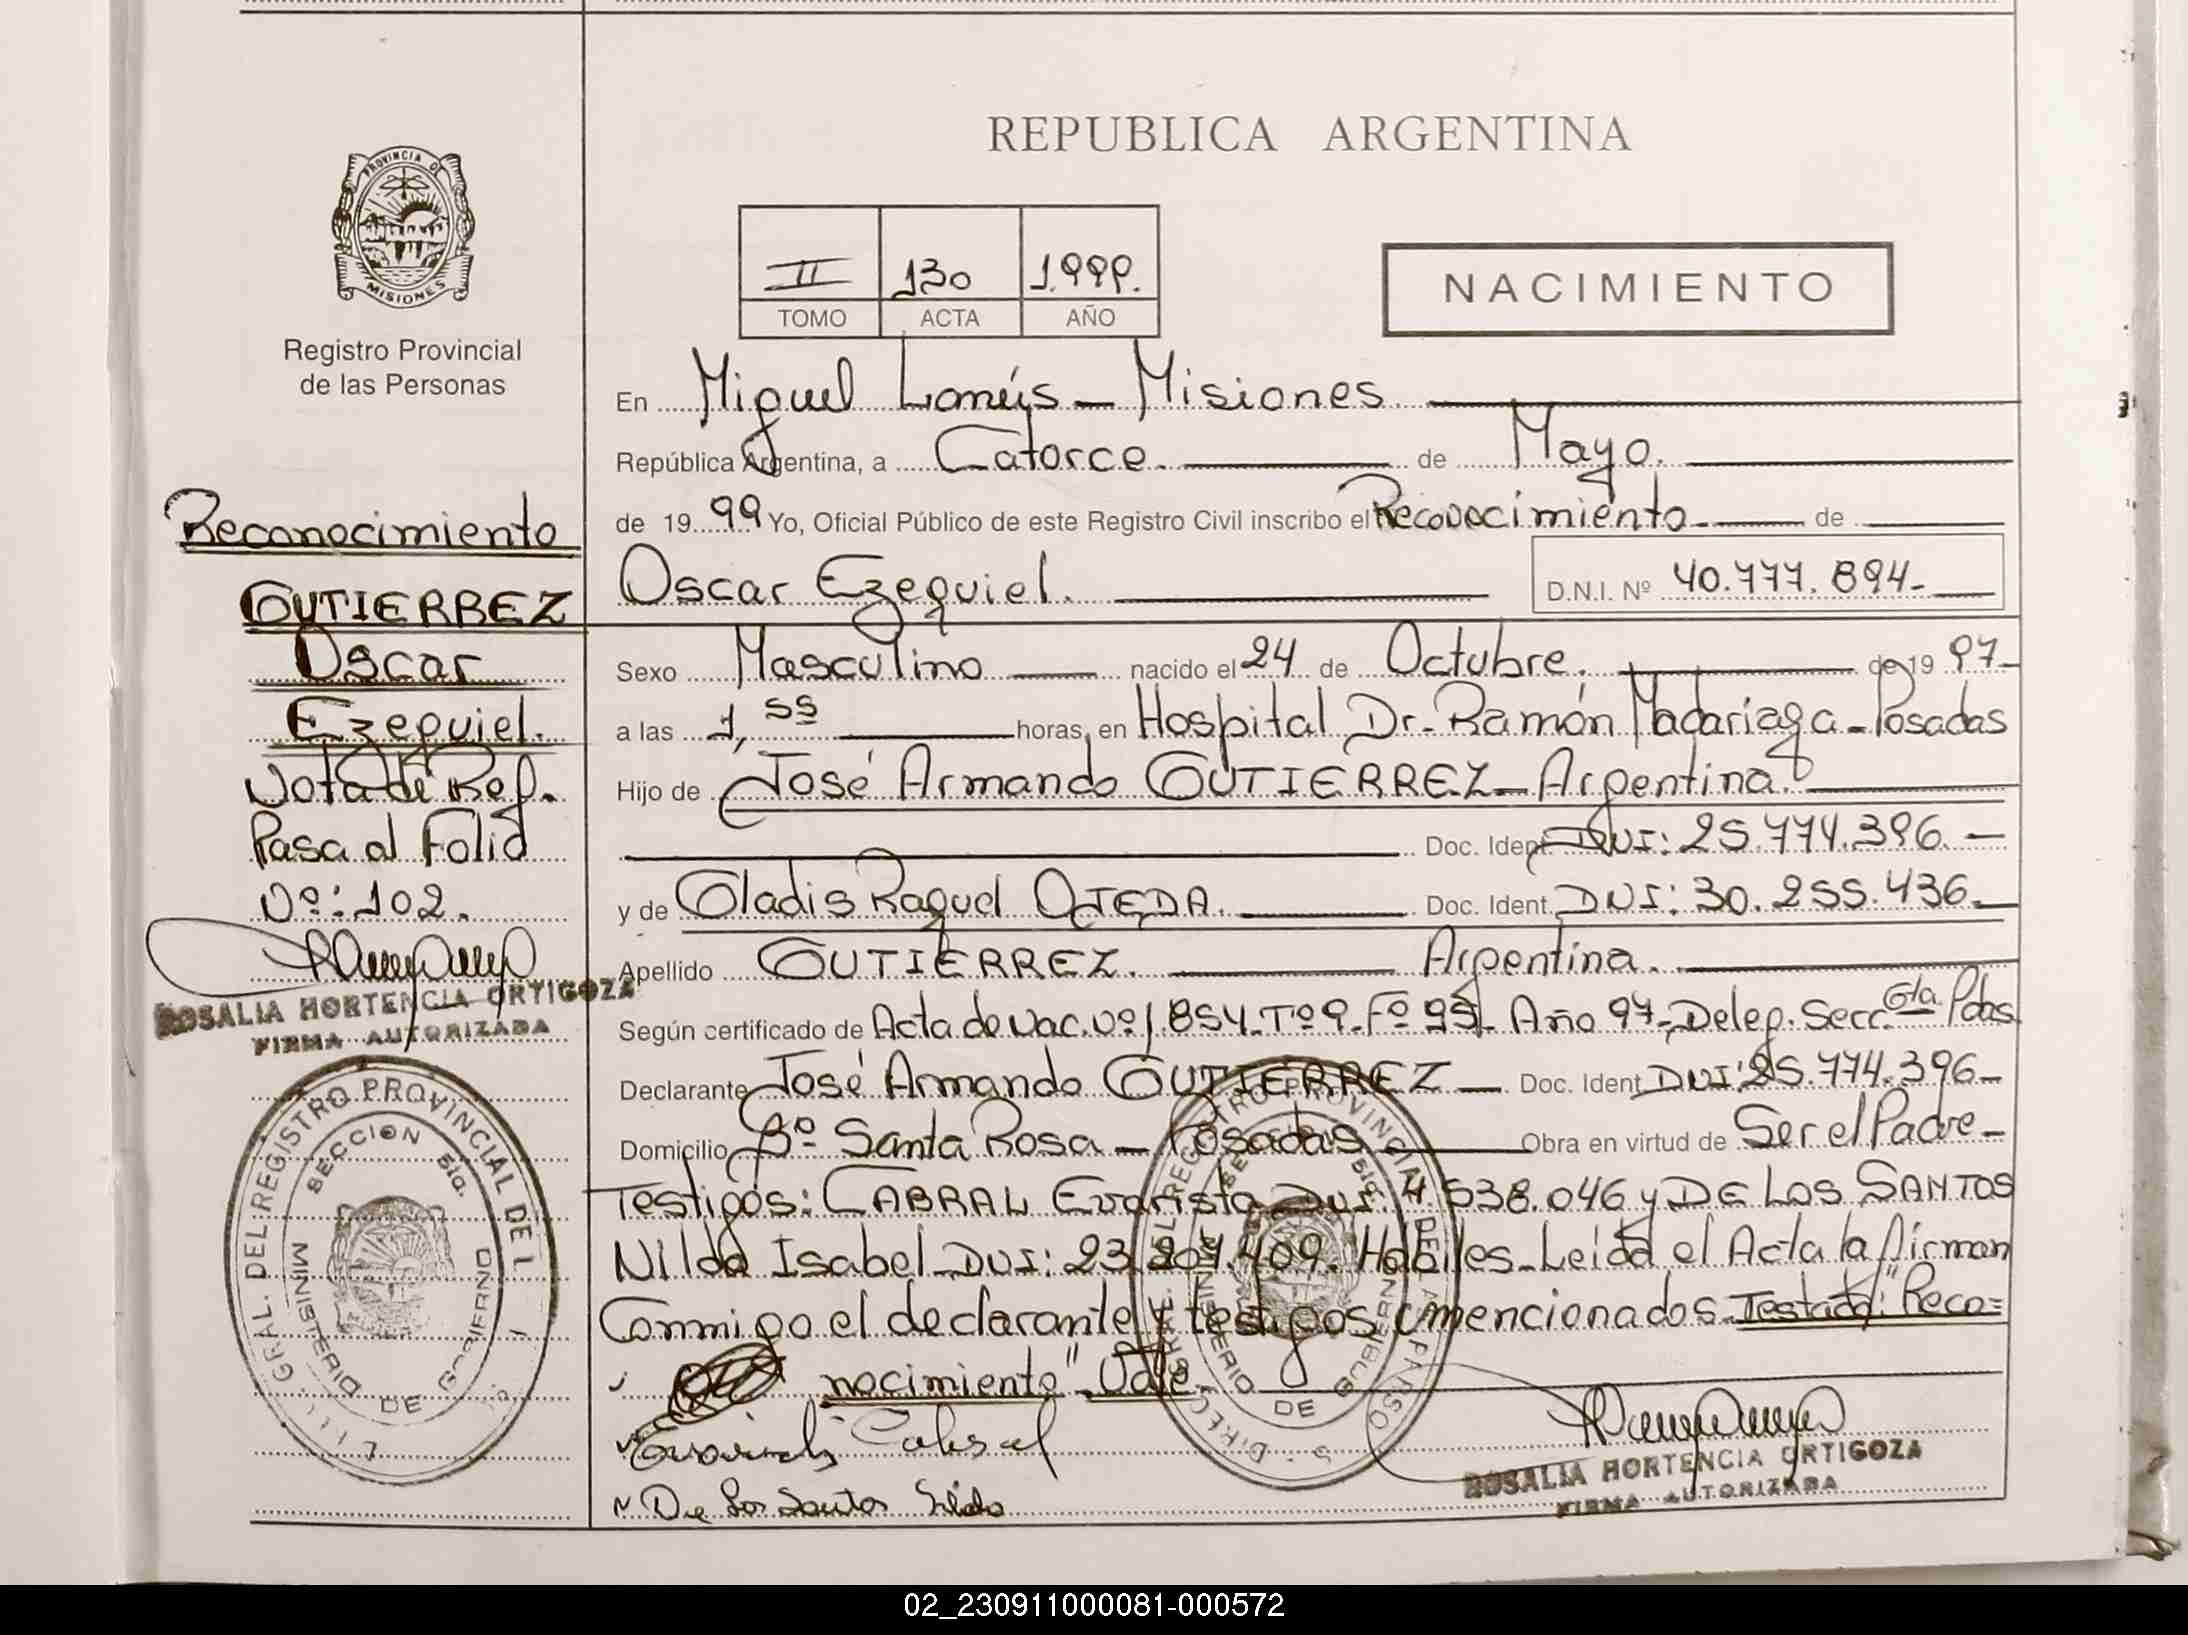 REPUBLICA ARGENTINA
PROVINCIA DE
MISIONES
Registro Provincial
de las Personas
II 130 1.999.
TOMO ACTA AÑO
NACIMIENTO
En Miguel Lanús - Misiones
República Argentina, a Catorce. de Mayo.
de 19 99 Yo, Oficial Público de este Registro Civil inscribo el Reconocimiento de
Oscar Ezequiel. D.N.I. Nº 40.777.894-
Sexo Masculino nacido el 24 de Octubre. de 19 97-
a las 1,55 horas, en Hospital Dr. Ramón Madariaga - Posadas
Hijo de José Armando GUTIERREZ - Argentina.
Doc. Ident. DNI: 25.774.396. -
y de Gladis Raquel OJEDA. Doc. Ident. DNI: 30.255.436.
Apellido GUTIERREZ. Argentina.
Según certificado de Acta de Nac. Nº 1.854. Tº 9. Fº 95 - Año 97 - Deleg. Secc. 6ta. Pdas.
Declarante José Armando GUTIERREZ - Doc. Ident. DNI: 25.774.396-
Domicilio Bº Santa Rosa - Posadas Obra en virtud de Ser el Padre -
Testigos: CABRAL Evaristo DNI: 4.538.046 y DE LOS SANTOS
Nilda Isabel - DNI: 23.207.409. Habiles - Leida el Acta la firman
Conmigo el declarante y testigos mencionados. Testado: "Reco=
nocimiento" Vale -
Cabral
De Los Santos Nilda
ROSALIA HORTENCIA ORTIGOZA
FIRMA AUTORIZADA
Reconocimiento
GUTIERREZ
Oscar
Ezequiel.
Nota de Ref.
Pasa al Folio
Nº: 102.
ROSALIA HORTENCIA ORTIGOZA
FIRMA AUTORIZADA
GRAL. DEL REGISTRO PROVINCIAL DE L
SECCION 5ta.
MINISTERIO DE GOBIERNO
MINISTERIO DE GOBIERNO
02_230911000081-000572